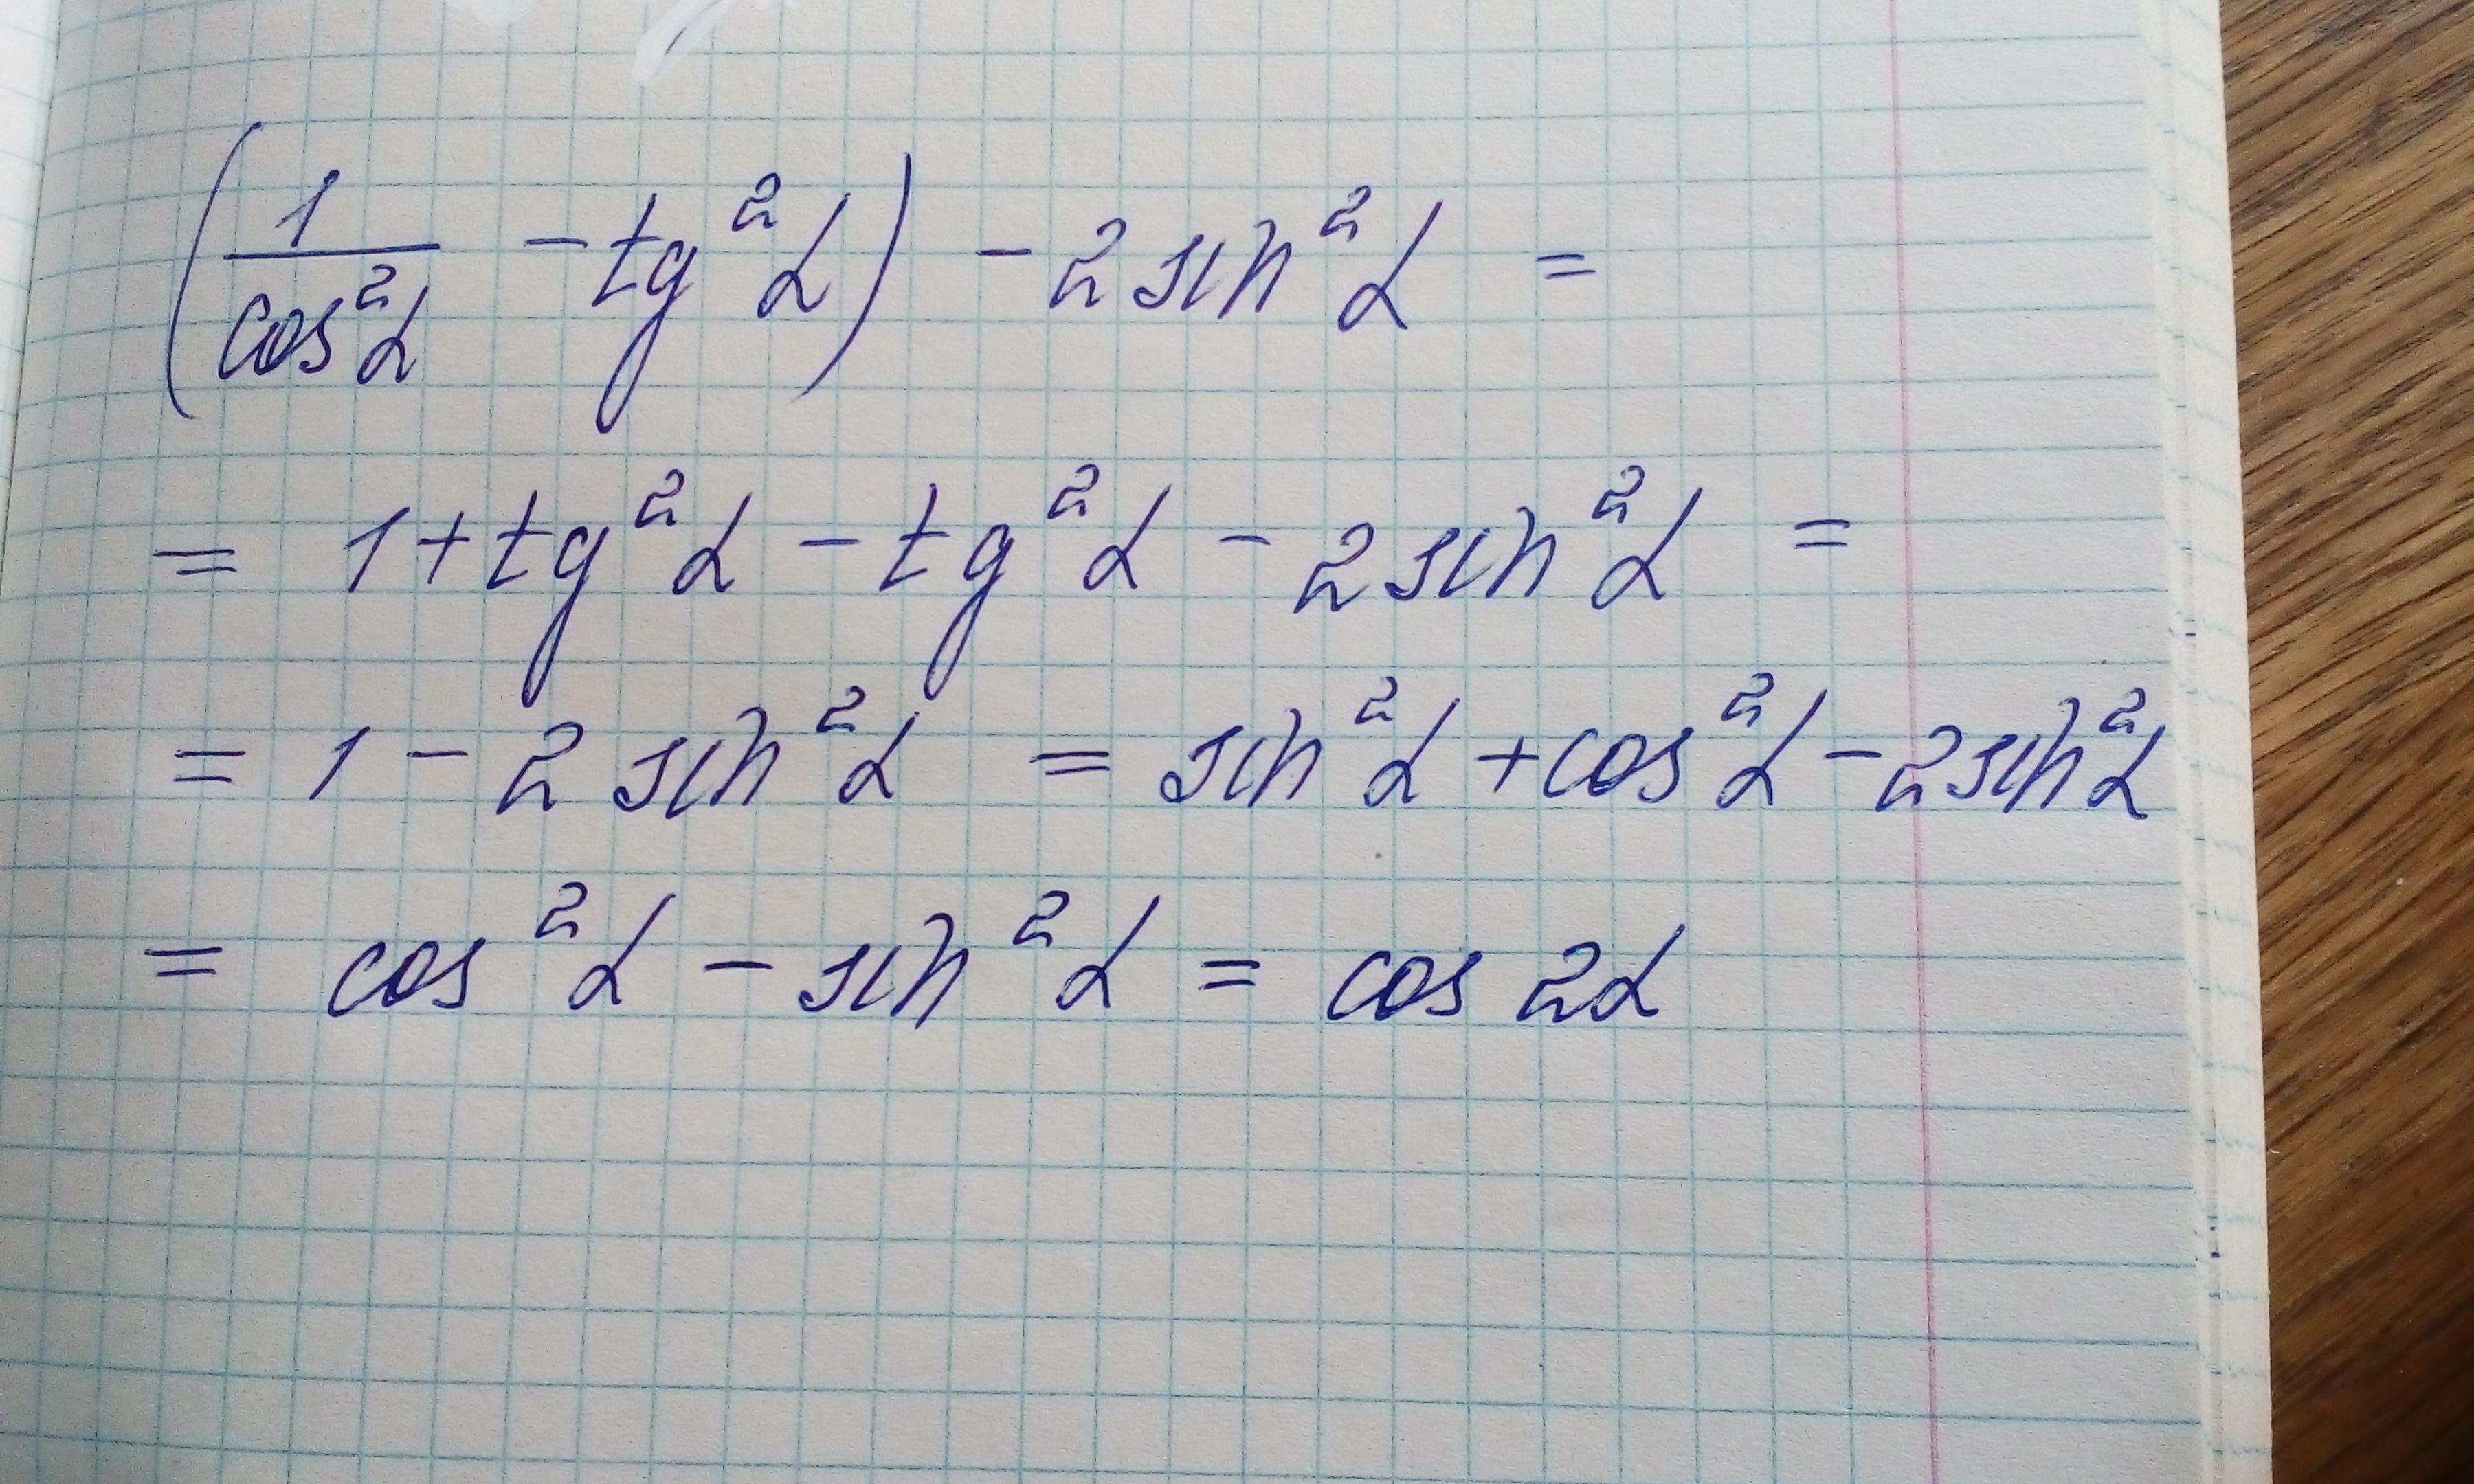 (1/cos²α - tg²α) - 2sin²α =
= 1 + tg²α - tg²α - 2sin²α =
= 1 - 2sin²α = sin²α + cos²α - 2sin²α
= cos²α - sin²α = cos 2α